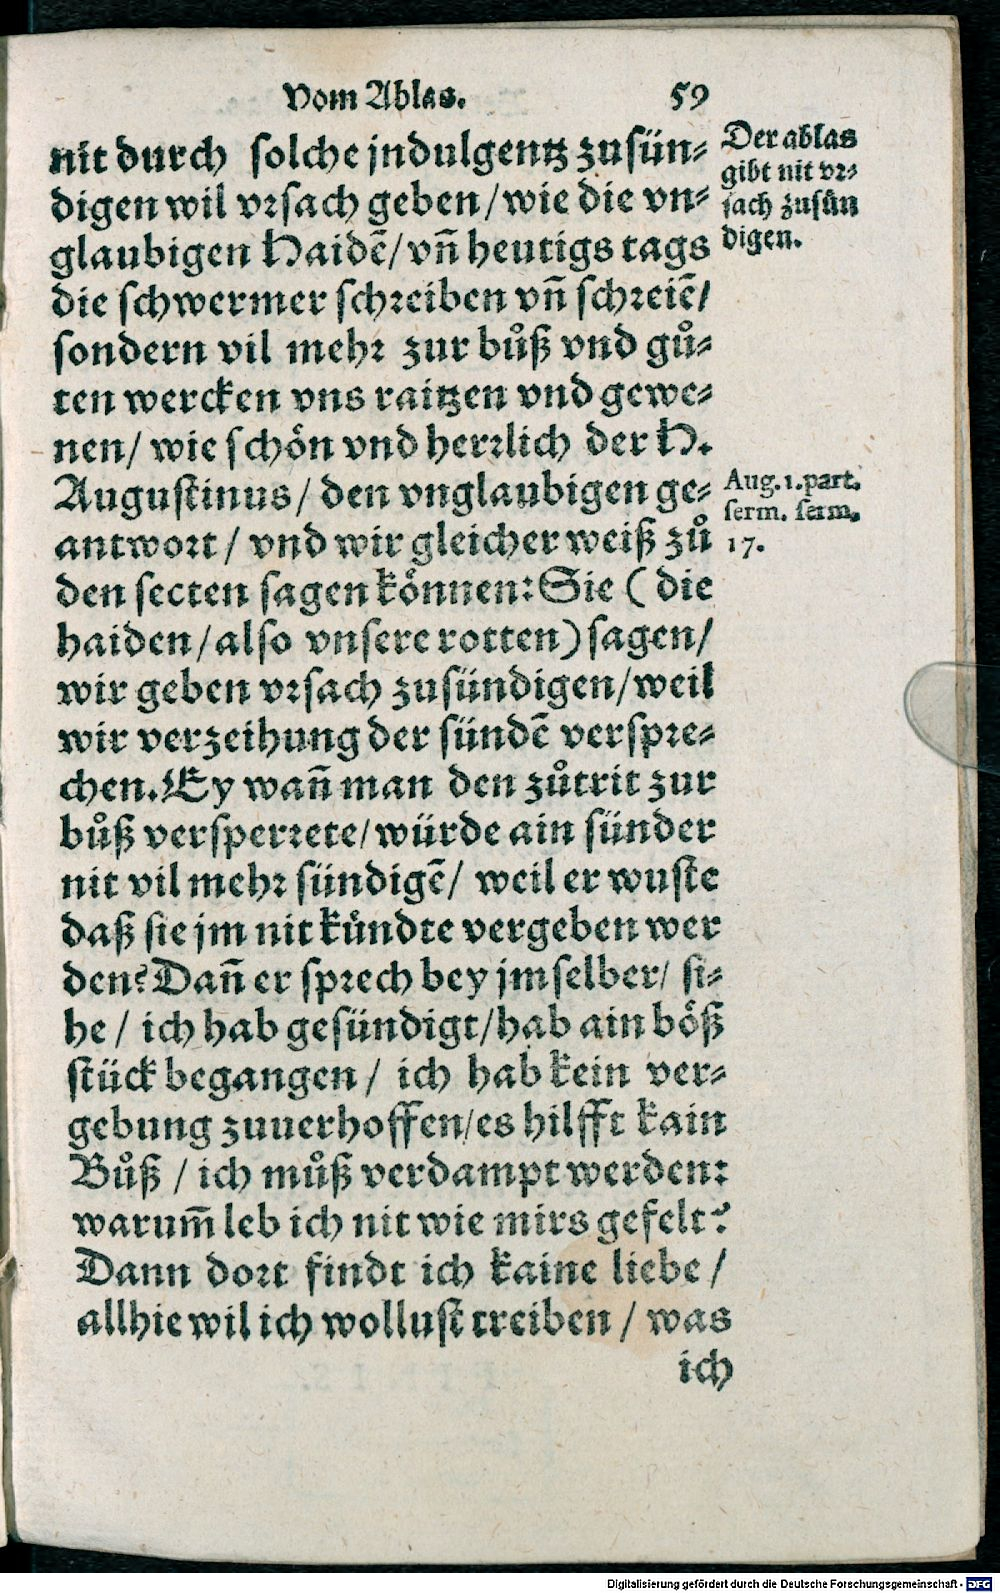 Vom Ablas. 59
nit durch solche jndulgentz zusün⸗
digen wil vrsach geben / wie die vn⸗
glaubigen Haidē / vn̄ heutigs tags
die schwermer schreiben vn̄ schreiē /
sondern vil mehr zur bůß vnd gů⸗
ten wercken vns raitzen vnd gewe⸗
nen / wie schön vnd herrlich der H.
Augustinus / den vnglaubigen ge⸗
antwort / vnd wir gleicher weiß zů
den secten sagen können: Sie ( die
haiden / also vnsere rotten) sagen /
wir geben vrsach zusündigen / weil
wir verzeihung der sündē verspre⸗
chen. Ey wan̄ man den zůtrit zur
bůß versperrete / würde ain sünder
nit vil mehr sündigē / weil er wuste
daß sie jm nit kündte vergeben wer
den? Dan̄ er sprech bey jm selber / si⸗
he / ich hab gesündigt / hab ain böß
stück begangen / ich hab kein ver⸗
gebung zuuerhoffen / es hilfft kain
Bůß / ich můß verdampt werden:
warum̄ leb ich nit wie mirs gefelt?
Dann dort findt ich kaine liebe /
allhie wil ich wollust treiben / was
ich
Der ablas
gibt nit vr⸗
sach zusün
digen.
Aug. 1. part.
serm. serm.
17.
Digitalisierung gefördert durch die Deutsche Forschungsgemeinschaft - DFG